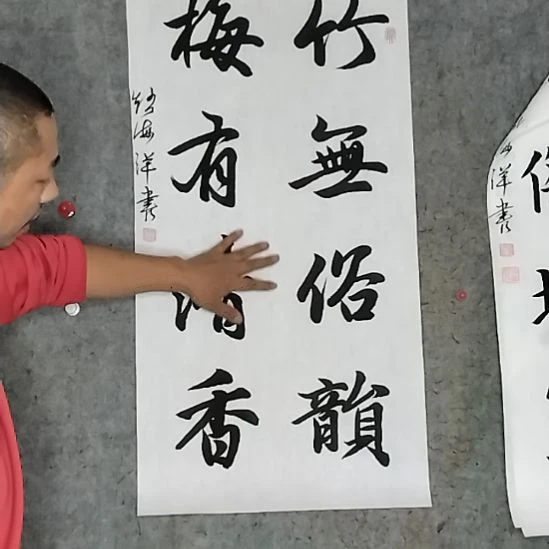 竹無俗韻
梅有清香
海洋書
洋書